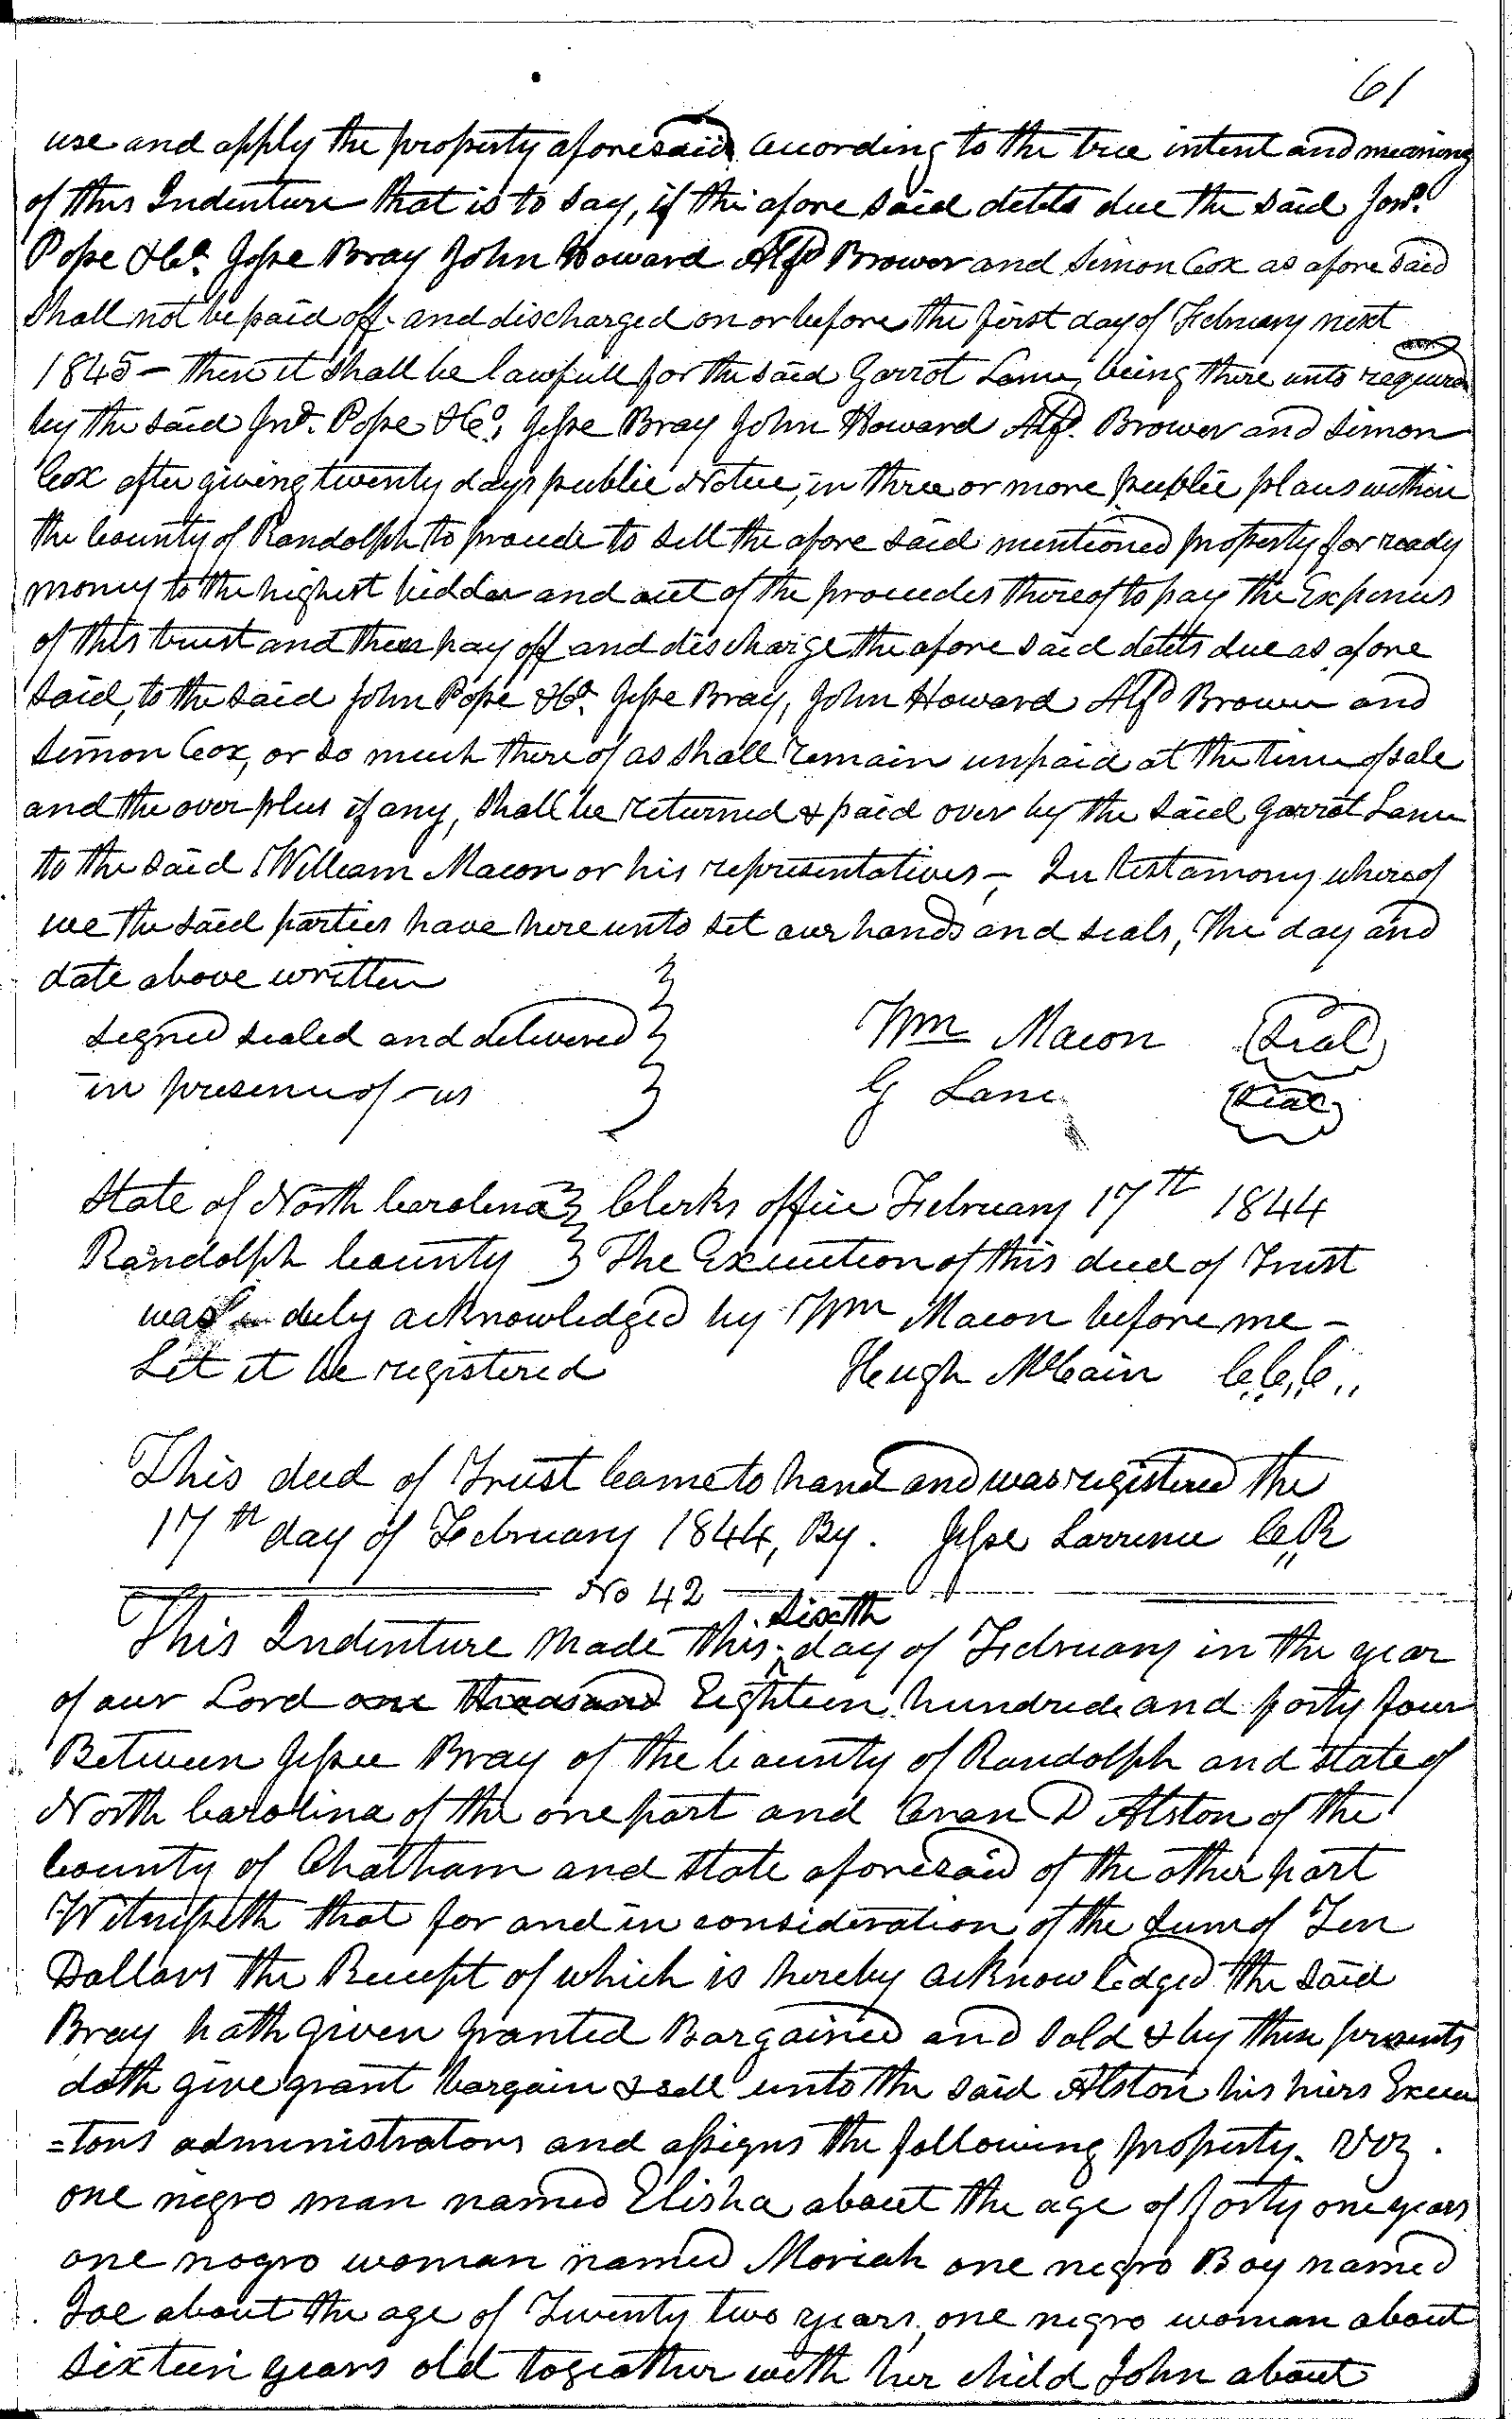 61
use and apply the property aforesaid according to the true intent and meaning
of this Indenture that is to say, if the afore said debts due the said Jno.
Pope & Co. Jesse Bray John Howard Alfd Brower and Simon Cox as afore said
Shall not be paid off and discharged on or before the first day of February next
1845 – then it shall be lawfull for the said Garrot Lane, being there unto required
by the said Jno. Pope & Co, Jesse Bray John Howard Alfd. Brower and Simon
Cox after giving twenty days public Notice, in three or more public places within
the County of Randolph to proceede to sell the afore said mentioned property for ready
money to the highest bidder and out of the proceedes thereof to pay the Expences
of this trust and then pay off and discharge the afore said debts due as afore
said, to the said John Pope & Co. Jesse Bray, John Howard Alfd Brower and
Simon Cox, or so much there of as shall remain unpaid at the time of sale
and the over plus if any, shall be returned & paid over by the said Garrot Lane
to the said William Macon or his representatives – In testamony whereof
we the said parties have here unto set our hands and seals, the day and
date above written
signed sealed and delivered
in presence of us
Wm Macon Seal
G Lane Seal
State of North Carolina Clerks office February 17th 1844
Randolph County The Execution of this deed of Trust
was duly acknowledged by Wm Macon before me –
Let it be registered Hugh McCain C,,C,,C,,
This deed of Trust Came to hand and was registered the
17th day of February 1844, By. Jesse Larrence C,,R
No 42
This Indenture Made this sixth day of February in the year
of our Lord one thousand Eighteen hundred and forty four
Between Jessee Bray of the County of Randolph and State of
North Carolina of the one part and Evan D Alston of the
County of Chatham and State aforesaid of the other part
Witnesseth that for and in consideration of the sum of Ten
Dollars the Receipt of which is hereby acknowledged the said
Bray hath given granted Bargained and sold & by these presents
doth give grant bargain & sell unto the said Alston his hiers Execu
=tors administrators and assigns the following property. Viz.
one negro man named Elisha about the age of forty one years
one negro woman named Moriah one negro Boy named
Joe about the age of Twenty two years, one negro woman about
Sixteen years old togeather with her child John about